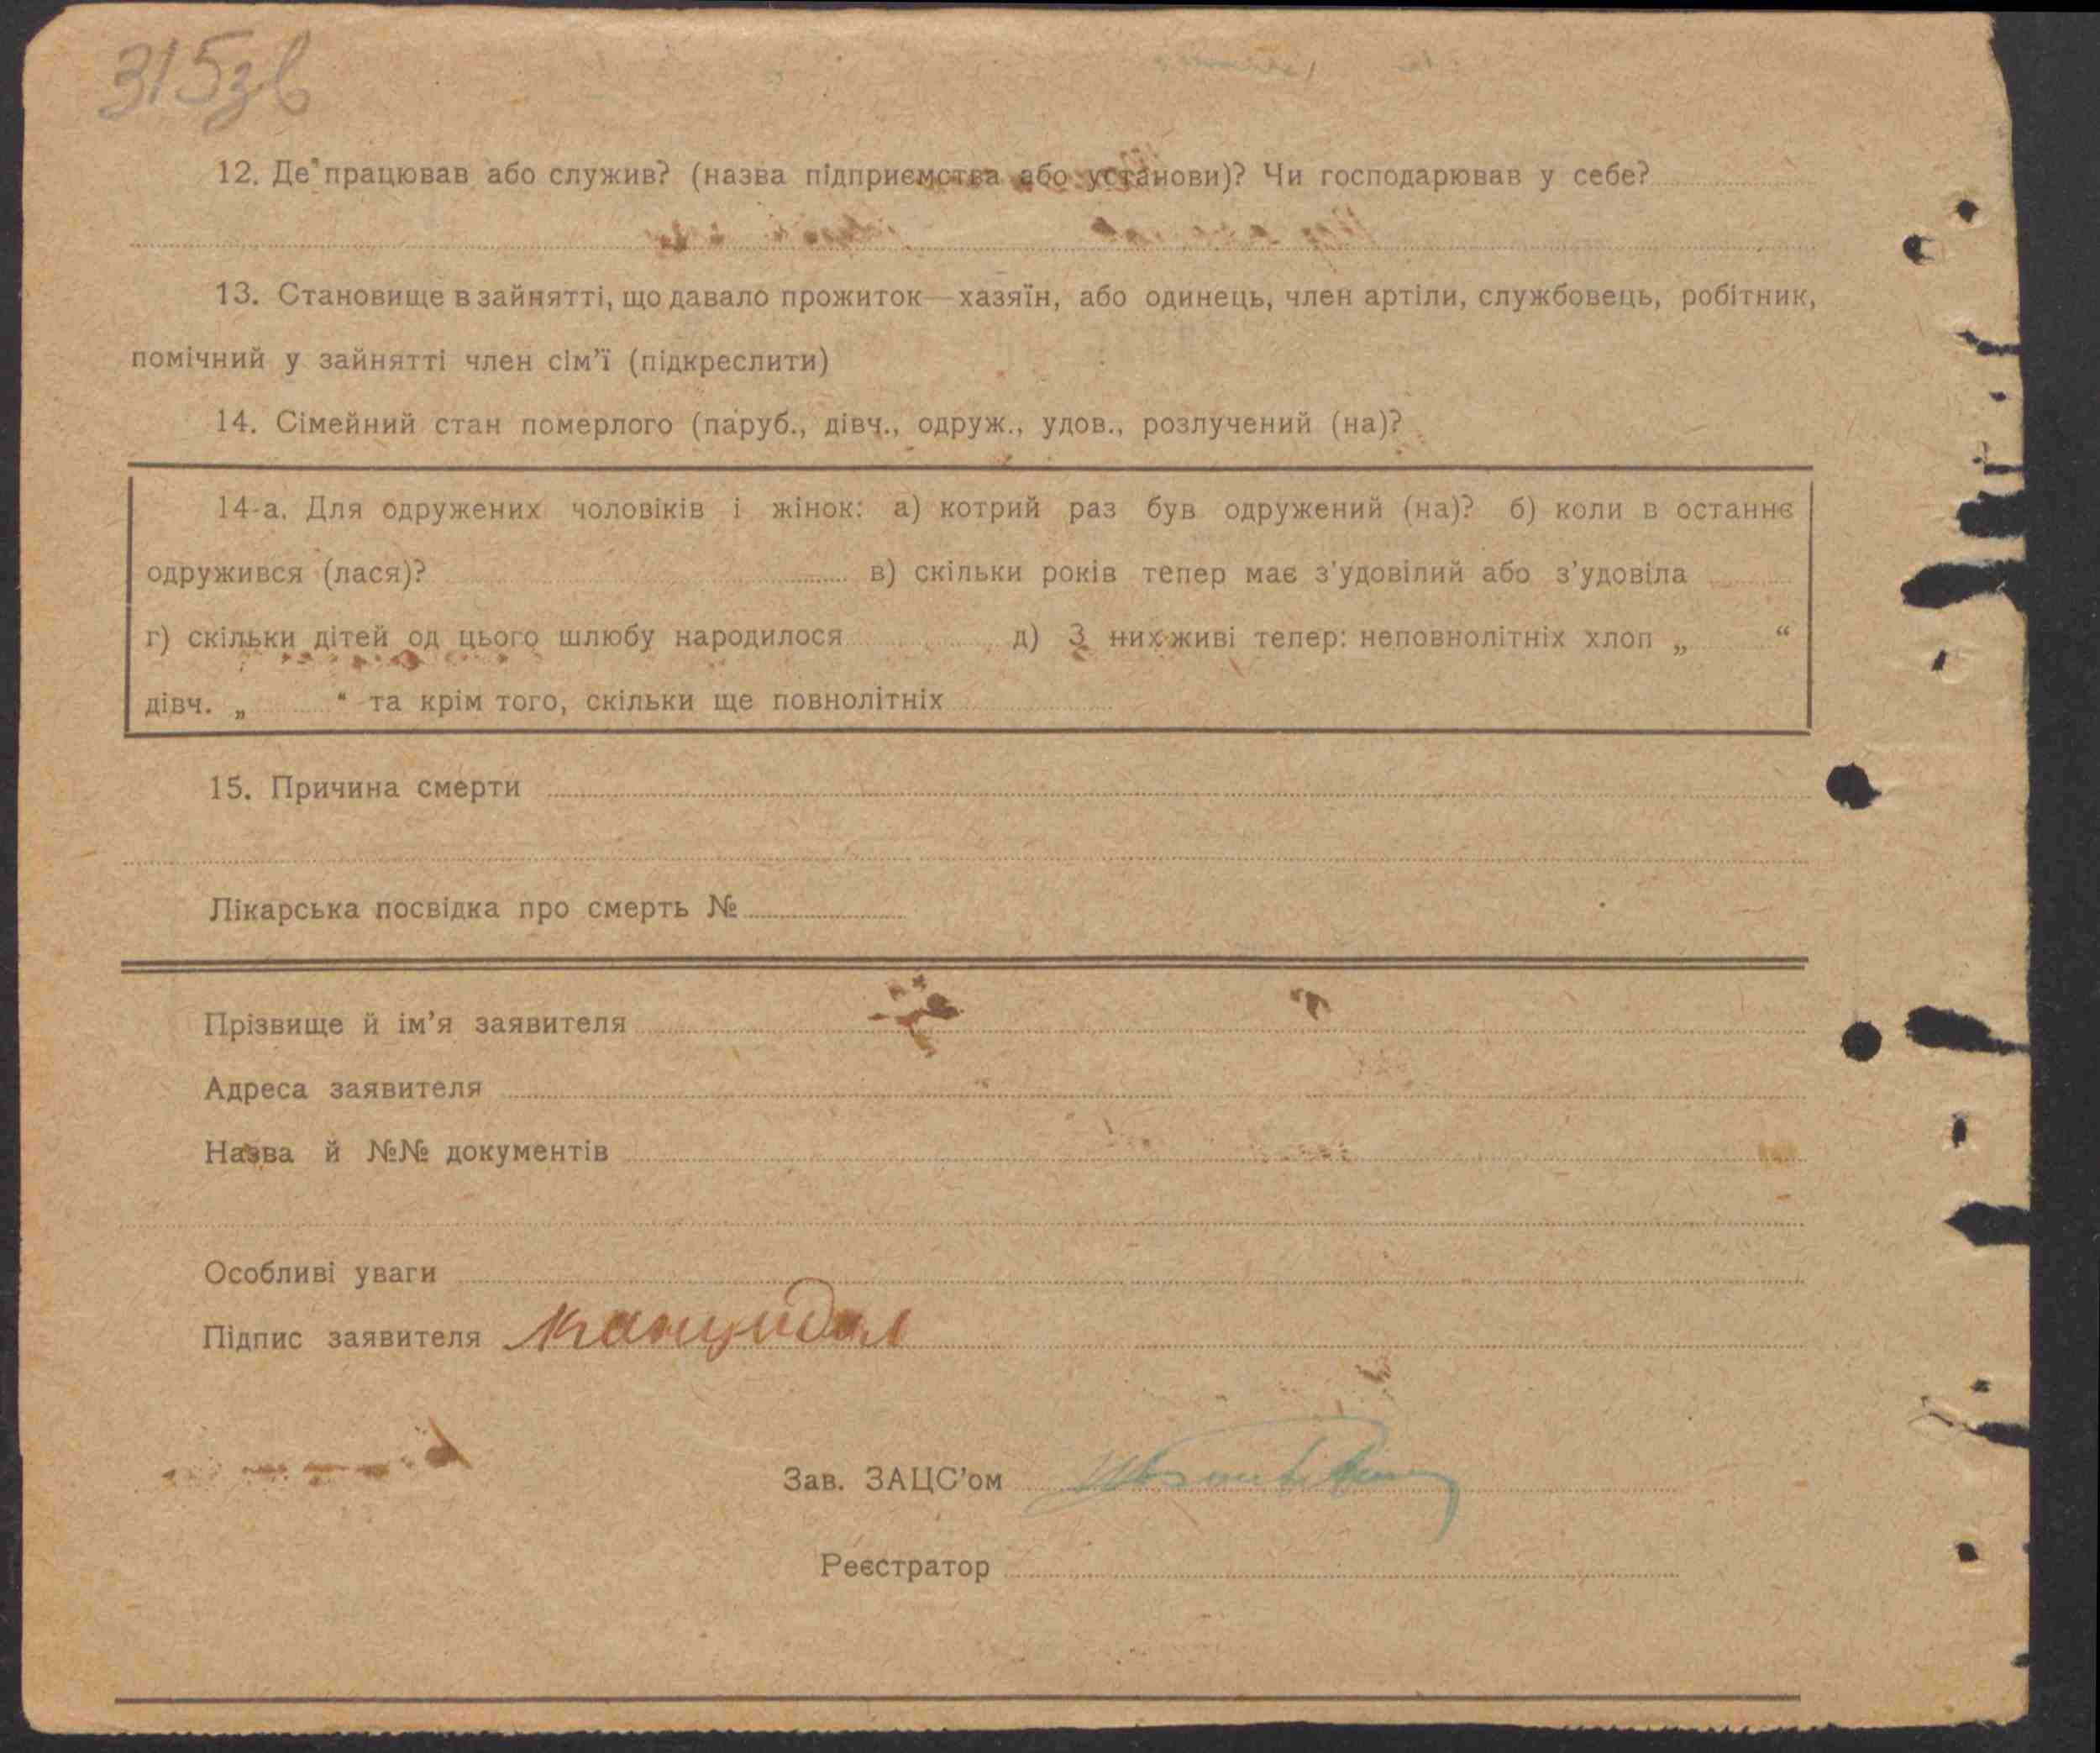 315зв
12. Де працював або служив? (назва підприємства або установи)? Чи господарював у себе?
13. Становище в зайнятті, що давало прожиток—хазяїн, або одинець, член артіли, службовець, робітник,
помічний у зайнятті член сім’ї (підкреслити)
14. Сімейний стан померлого (паруб., дівч., одруж., удов., розлучений (на)?
14-а. Для одружених чоловіків і жінок: а) котрий раз був одружений (на)? б) коли в останнє
одружився (лася)? в) скільки років тепер має з’удовілий або з’удовіла
г) скільки дітей од цього шлюбу народилося д) З них живі тепер: неповнолітніх хлоп „ “
дівч. „ “ та крім того, скільки ще повнолітніх
15. Причина смерти
Лікарська посвідка про смерть №
Прізвище й ім’я заявителя
Адреса заявителя
Назва й №№ документів
Особливі уваги
Підпис заявителя
Зав. ЗАЦС’ом
Реєстратор